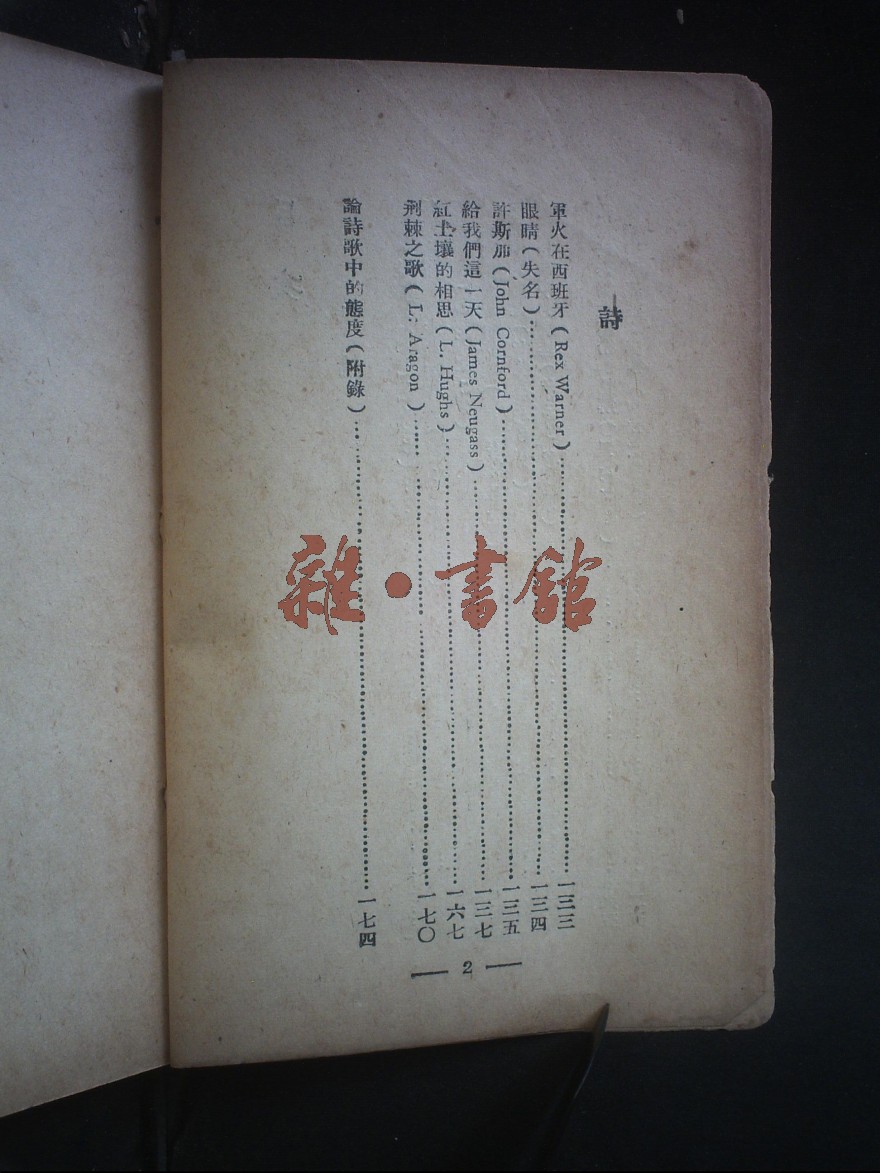 詩
軍火在西班牙(Rex Warner)……一三三
眼睛(失名)……一三四
許斯加(John Cornford)……一三五
給我們這一天(James Neugass)……一三七
紅土壤的相思(L. Hughs)……一六七
荆棘之歌(L: Aragon)……一七〇
論詩歌中的態度(附錄)……一七四
— 2 —
雜·書館